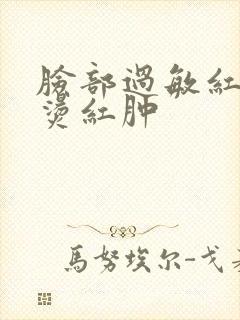 臉部過敏紅
燙紅肿
馬努埃尔-戈